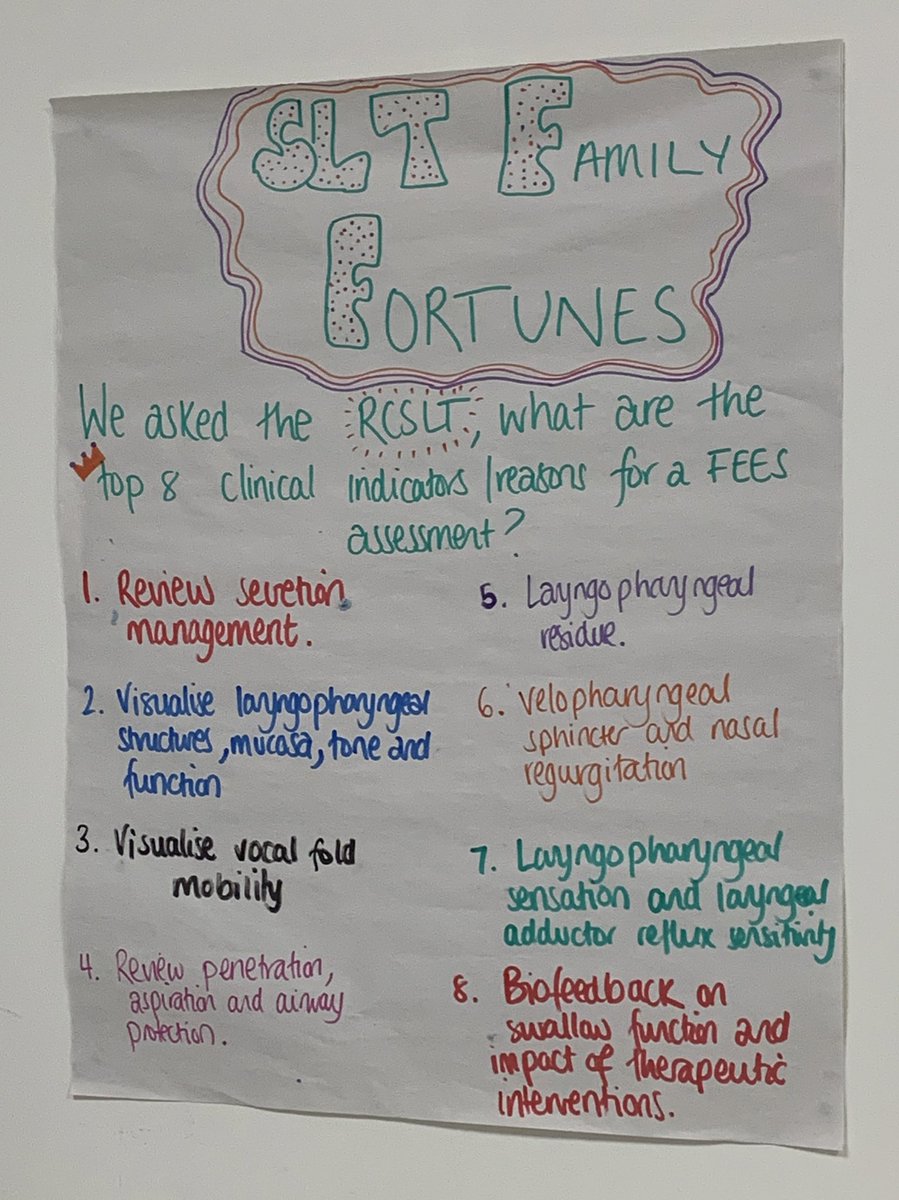 SLT FAMILY
FORTUNES
We asked the RCSLT, what are the
top 8 clinical indicators/reasons for a FEES
assessment?
1. Review secretion
management.
2. Visualise layngopharyngeal
structures, mucosa, tone and
function
3. Visualise vocal fold
mobility
4. Review penetration,
aspiration and airway
protection.
5. Layngopharyngeal
residue.
6. Velopharyngeal
sphincter and nasal
regurgitation
7. Layngopharyngeal
sensation and layngeal
adductor reflux sensitivity
8. Biofeedback on
swallow function and
impact of therapeutic
interventions.